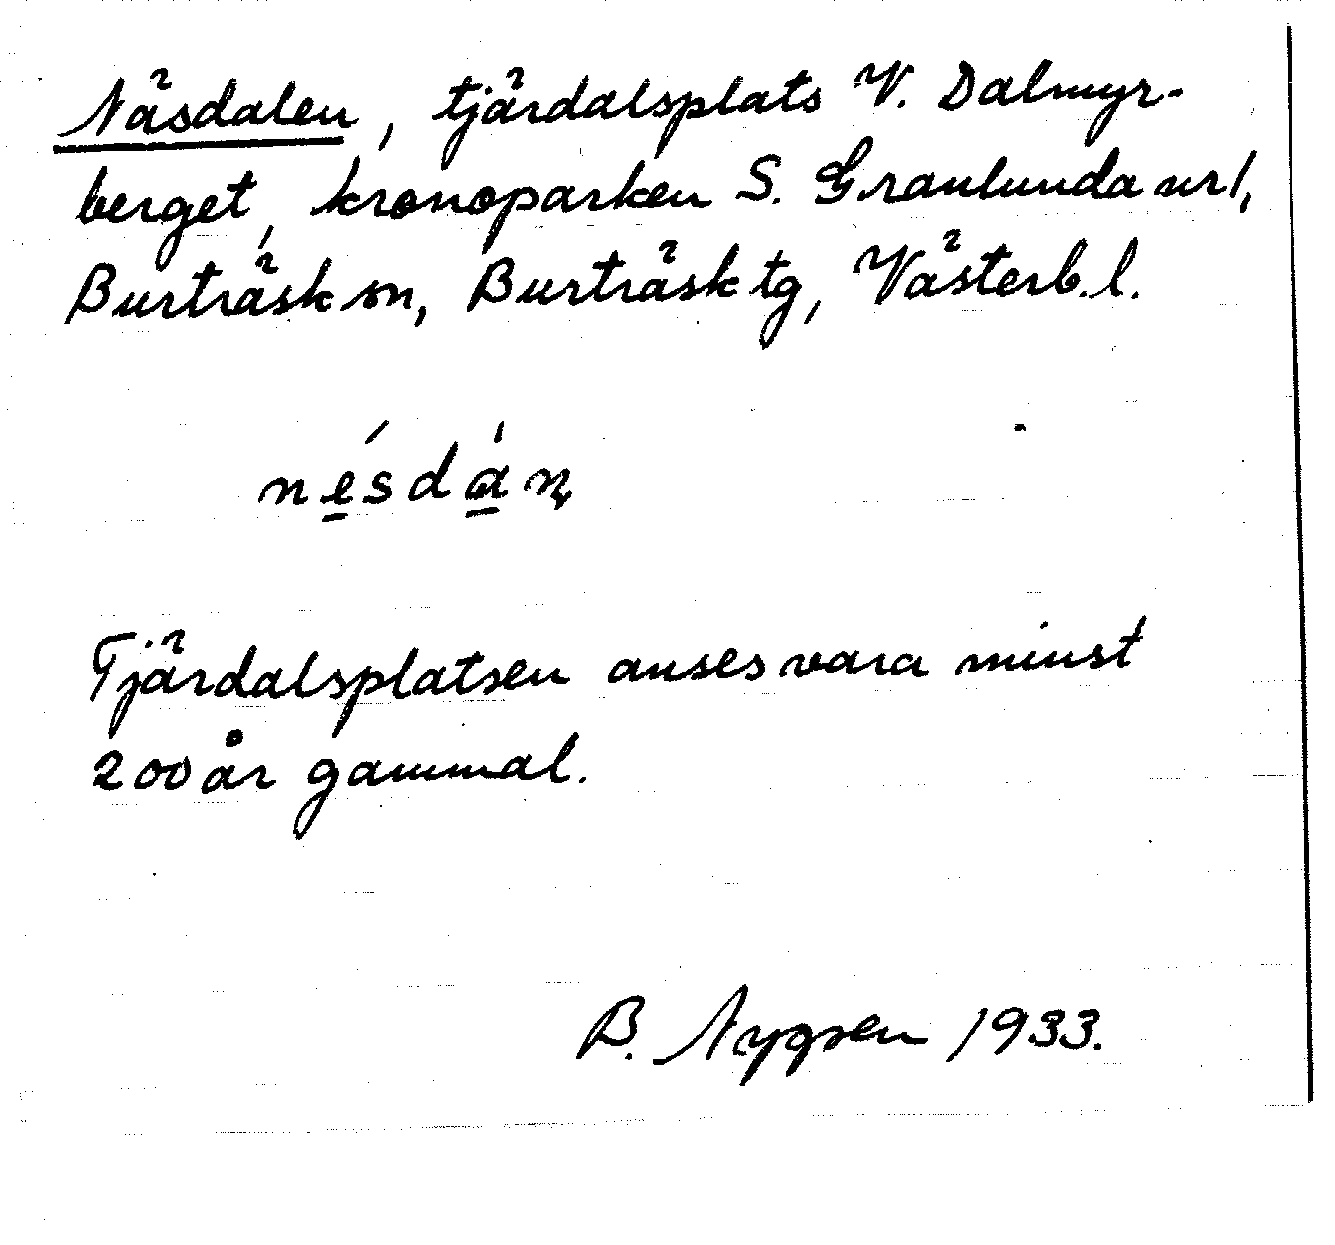 Näsdalen, tjärdalsplats V. Dalmyr-
berget, kronoparken S. Granlunda nr 1,
Burträsk sn, Burträsk tg, Västerb. l.
nésdán
Tjärdalsplatsen anses vara minst
200 år gammal.
B. Nygren 1933.